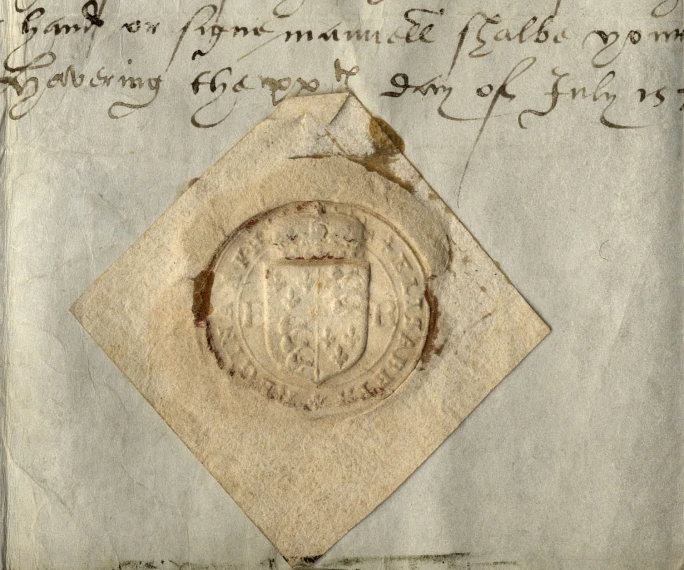 hand or signe manuell shalbe your
Havering the xxth day of July 15
ELISABETH
REGINA
E R